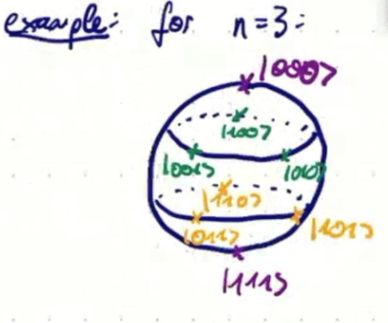 example: for n=3:
|000>
|100>
|001> |010>
|110>
|011> |101>
|111>